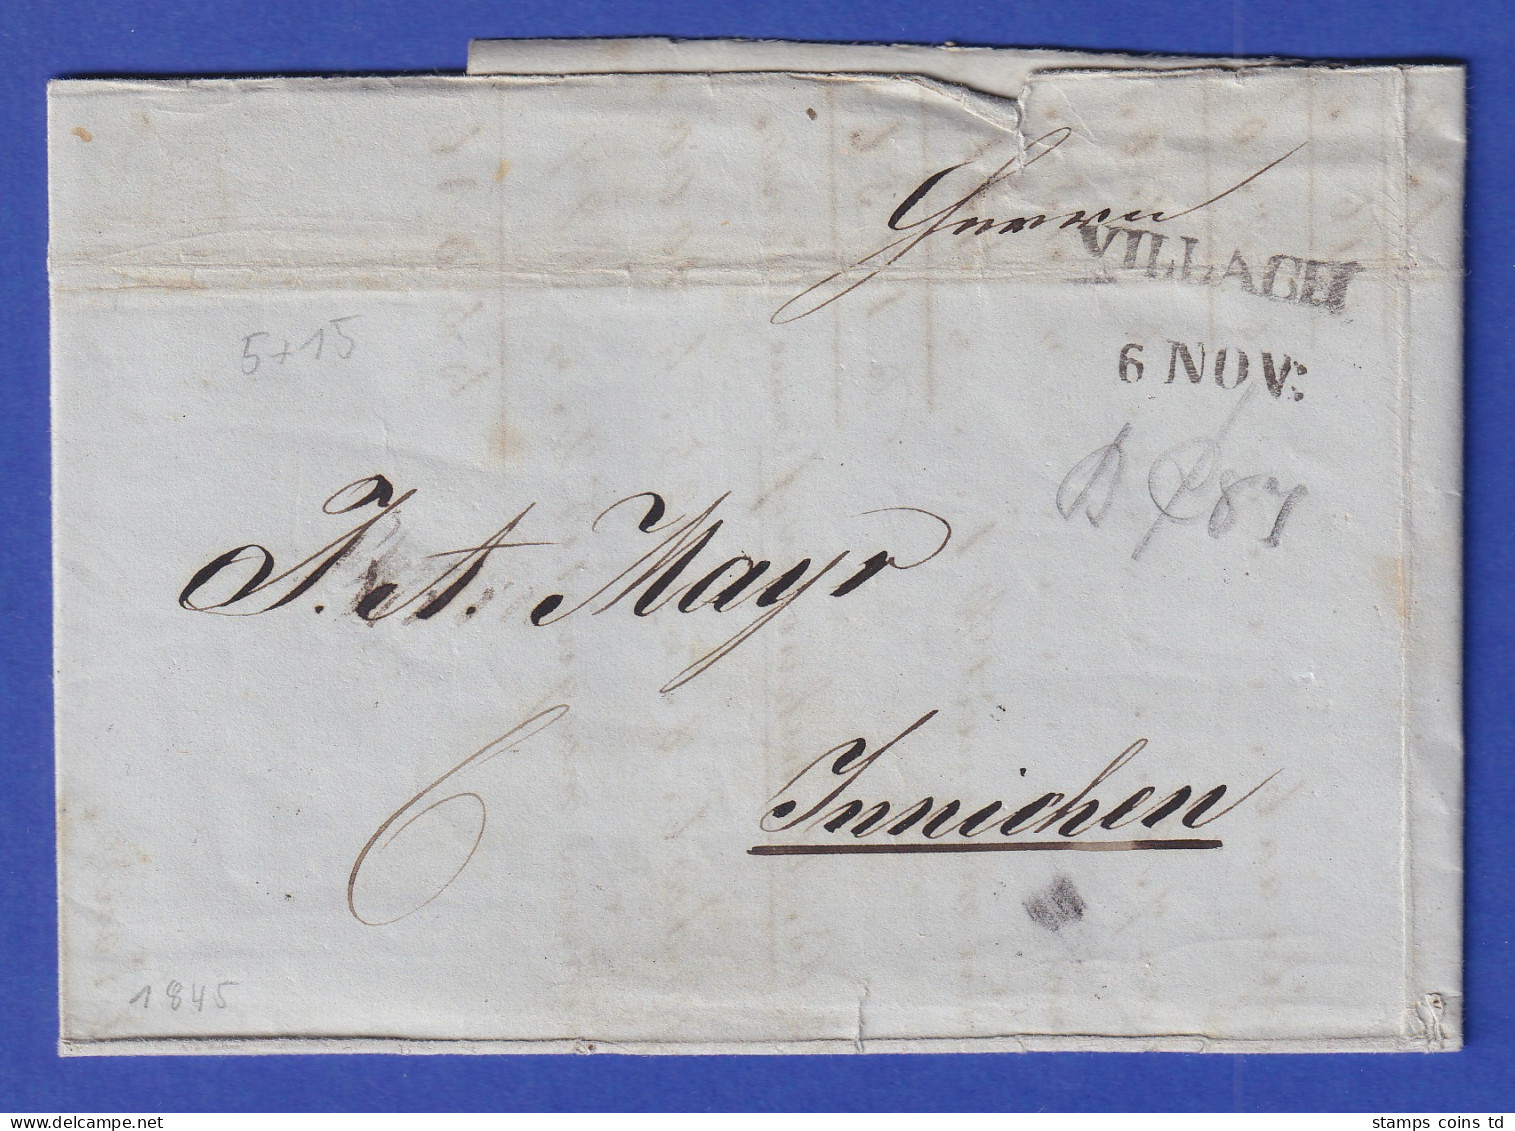 Herrn
VILLACH
6 NOV:
5+15
J. A. Mayr
6
Innichen
1845
stamps coins td